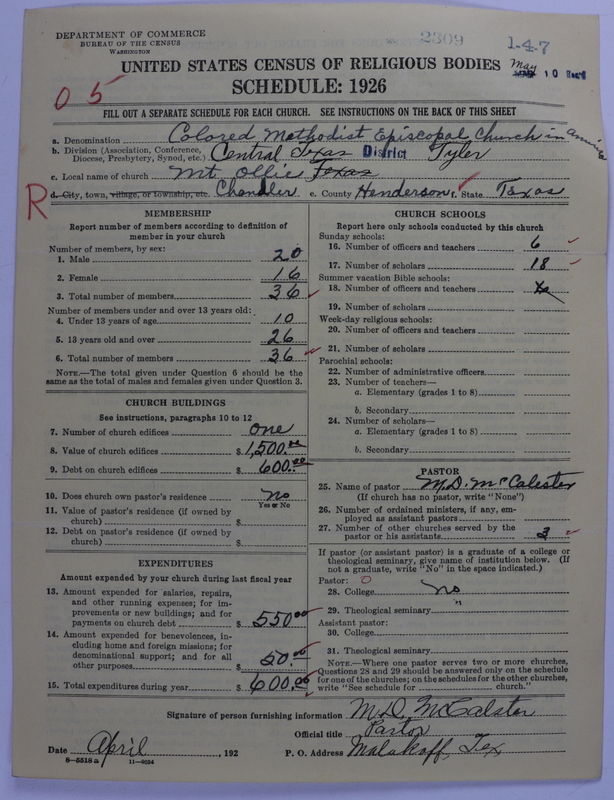 DEPARTMENT OF COMMERCE
BUREAU OF THE CENSUS
WASHINGTON
2309
1-4-7
May 10 Rec'd
UNITED STATES CENSUS OF RELIGIOUS BODIES
SCHEDULE: 1926
0 5
FILL OUT A SEPARATE SCHEDULE FOR EACH CHURCH. SEE INSTRUCTIONS ON THE BACK OF THIS SHEET
a. Denomination Colored Methodist Episcopal Church in America
b. Division (Association, Conference, Diocese, Presbytery, Synod, etc.) Central Texas District Tyler
c. Local name of church Mt, Ollie Texas
R
d. City, town, village, or township, etc. Chandler e. County Henderson f. State Texas
MEMBERSHIP
Report number of members according to definition of
member in your church
Number of members, by sex:
1. Male 20
2. Female 16
3. Total number of members 36
Number of members under and over 13 years old:
4. Under 13 years of age 10
5. 13 years old and over 26
6. Total number of members 36
NOTE.—The total given under Question 6 should be
same as the total of males and females given under Question 3.
CHURCH BUILDINGS
See instructions, paragraphs 10 to 12
7. Number of church edifices one
8. Value of church edifices $ 1,500.00
9. Debt on church edifices $ 600.00
10. Does church own pastor's residence No
Yes or No
11. Value of pastor's residence (if owned by
church) $
12. Debt on pastor's residence (if owned by
church) $
EXPENDITURES
Amount expended by your church during last fiscal year
13. Amount expended for salaries, repairs,
and other running expenses; for im-
provements or new buildings; and for
payments on church debt $ 550.00
14. Amount expended for benevolences, in-
cluding home and foreign missions; for
denominational support; and for all
other purposes $ 50.—
15. Total expenditures during year $ 600.00
CHURCH SCHOOLS
Report here only schools conducted by this church
Sunday schools:
16. Number of officers and teachers 6
17. Number of scholars 18
Summer vacation Bible schools:
18. Number of officers and teachers
19. Number of scholars
Week-day religious schools:
20. Number of officers and teachers
21. Number of scholars
Parochial schools:
22. Number of administrative officers
23. Number of teachers—
a. Elementary (grades 1 to 8)
b. Secondary
24. Number of scholars—
a. Elementary (grades 1 to 8)
b. Secondary
PASTOR
25. Name of pastor M.D. McCalester
(If church has no pastor, write "None")
26. Number of ordained ministers, if any, em-
ployed as assistant pastors
27. Number of other churches served by the
pastor or his assistants 3
If pastor (or assistant pastor) is a graduate of a college or
theological seminary, give name of institution below. (If
not a graduate, write "No" in the space indicated.)
Pastor: 0
28. College No
29. Theological seminary "
Assistant pastor:
30. College
31. Theological seminary
NOTE.—Where one pastor serves two or more churches,
Questions 28 and 29 should be answered only on the schedule
for one of the churches; on the schedules for the other churches,
write "See schedule for church."
Signature of person furnishing information M.D. McCalster
Official title Pastor
Date April , 192 P. O. Address Malakoff, Tex
8-5518a 11-9034